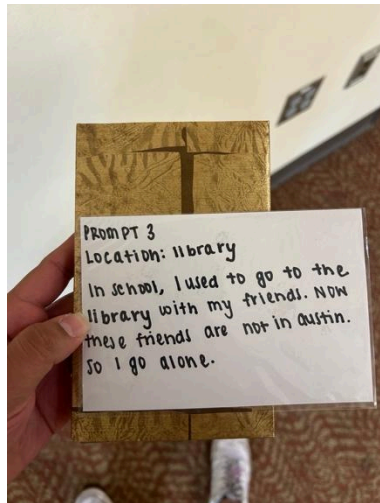 PROMPT 3
Location: library
In school, I used to go to the
library with my friends. NOW
these friends are not in austin.
so I go alone.